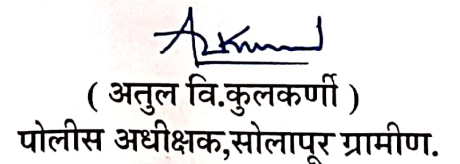 ( अतुल वि.कुलकर्णी )
पोलीस अधीक्षक,सोलापूर ग्रामीण.